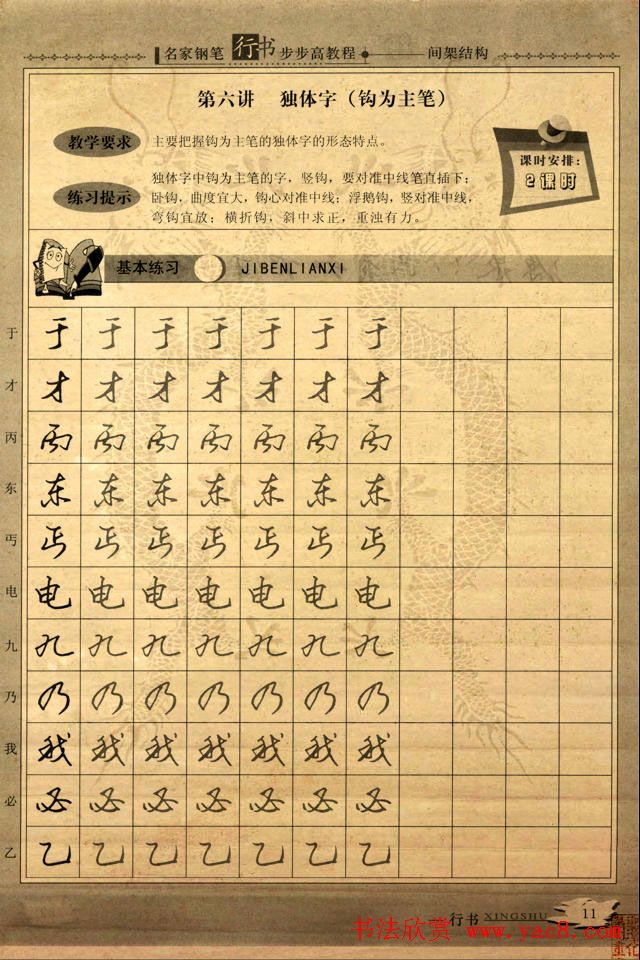 名家钢笔行书步步高教程 间架结构
第六讲 独体字（钩为主笔）
教学要求 主要把握钩为主笔的独体字的形态特点。
课时安排：
2课时
练习提示 独体字中钩为主笔的字，竖钩，要对准中线笔直插下；
卧钩，曲度宜大，钩心对准中线；浮鹅钩，竖对准中线，
弯钩宜放；横折钩，斜中求正，重浊有力。
基本练习 JIBENLIANXI
于 于 于 于 于 于 于 于
才 才 才 才 才 才 才 才
丙 丙 丙 丙 丙 丙 丙 丙
东 东 东 东 东 东 东 东
丐 丐 丐 丐 丐 丐 丐 丐
电 电 电 电 电 电 电 电
九 九 九 九 九 九 九 九
乃 乃 乃 乃 乃 乃 乃 乃
我 我 我 我 我 我 我 我
必 必 必 必 必 必 必 必
乙 乙 乙 乙 乙 乙 乙 乙
行书 XINGSHU 11
书法欣赏 www.yac8.com